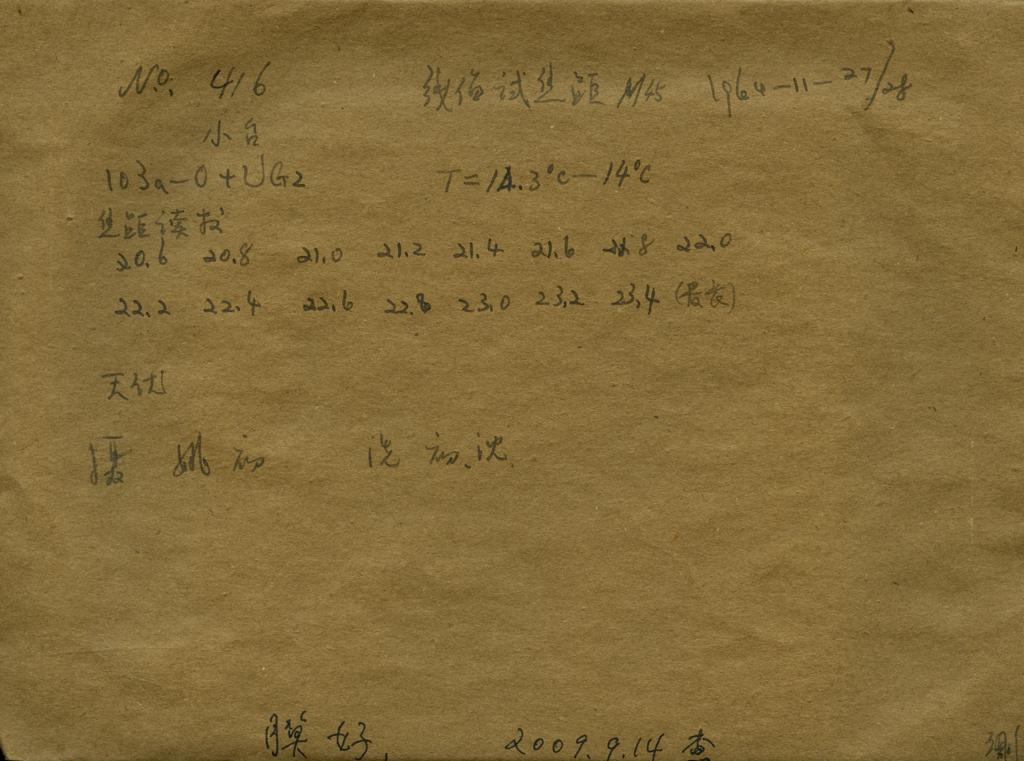 No. 416 试焦距 M45 1964-11-27/28
小台
103a-O+UG2 T=14.3°C-14°C
焦距读
20.6 20.8 21.0 21.2 21.4 21.6 21.8 22.0
22.2 22.4 22.6 22.8 23.0 23.2 23.4 (最长)
天优
摄 姚 初 洗 初.沈
膜好. 2009.9.14 查
测